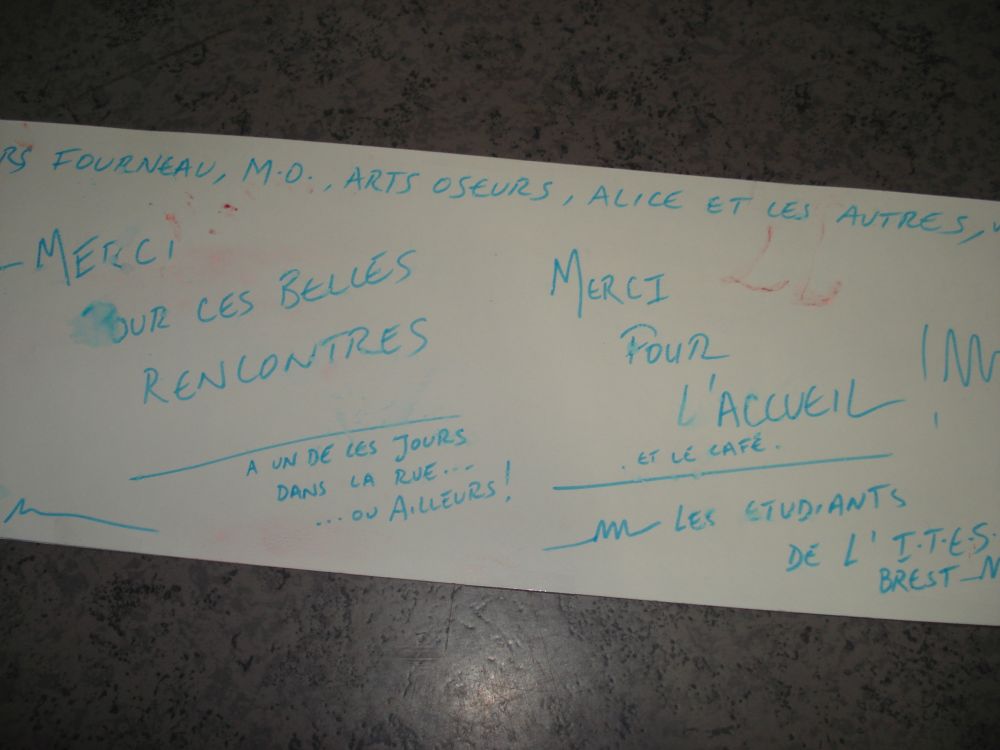 RS FOURNEAU, M.O., ARTS OSEURS, ALICE ET LES AUTRES,
MERCI
POUR CES BELLES
RENCONTRES
A UN DE CES JOURS
DANS LA RUE...
...OU AILLEURS!
MERCI
POUR
L'ACCUEIL
. ET LE CAFÉ.
LES ETUDIANTS
DE L' I.T.E.S.
BREST